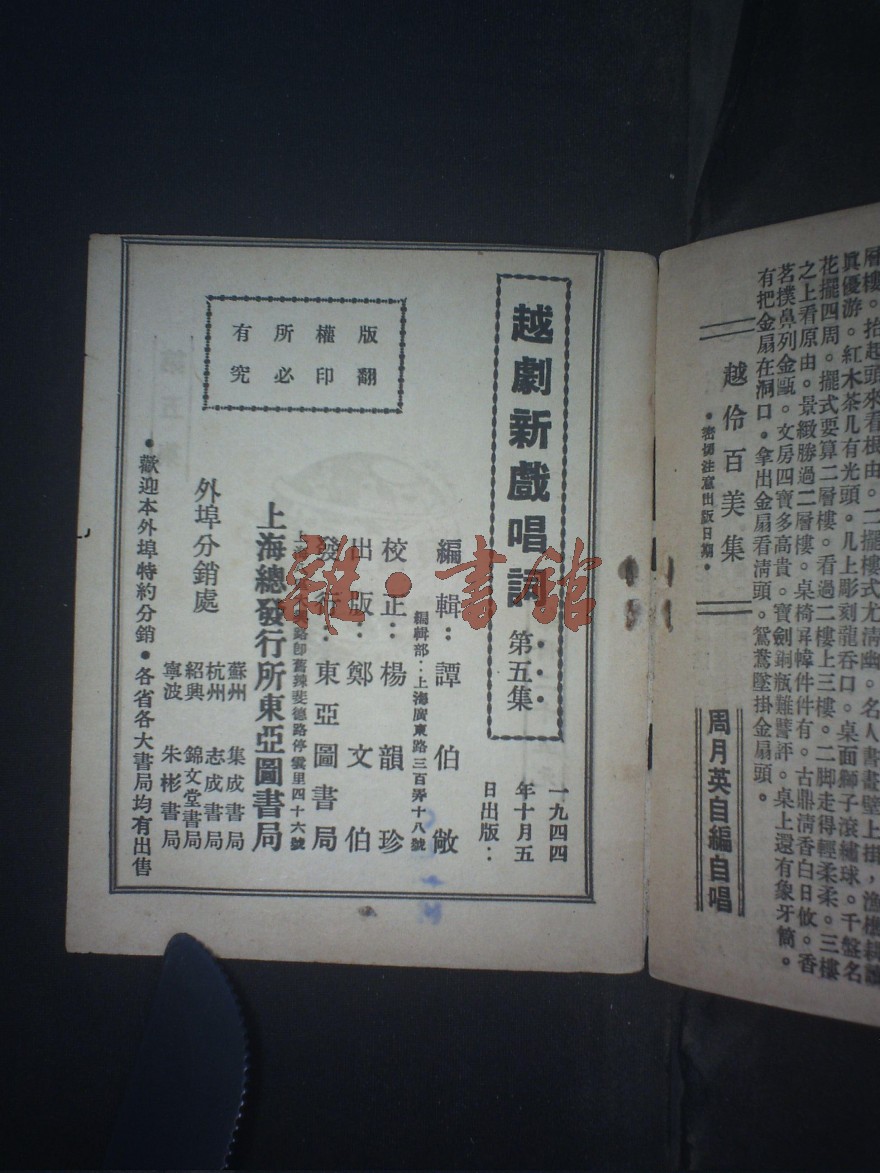 層樓。抬起頭來看根由。二擺樓式尤清幽。名人書畫壁上掛，漁樵耕讀
眞優游。紅木茶几有光頭。几上彫刻龍吞口。桌面獅子滾繡球。千盤名
花擺四周。擺式要算二層樓。看過二樓上三樓。二脚走得輕柔柔。三樓
之上看原由。景緻勝過二層樓。桌椅屛幃件件有。古鼎淸香白日攸。香
茗撲鼻列金甌。文房四寶多高貴。寶劍銅瓶難譬評。桌上還有象牙筒。
有把金扇在洞口。拿出金扇看淸頭。鴛鴦墜掛金扇頭。
越伶百美集
•密切注意出版日期•
周月英自編自唱
越劇新戲唱詞•••第五集
一九四四
年十月五
日出版：
編輯：譚伯敞
編輯部：上海廣東路三百弄十八號
校正：楊韻珍
出版：鄭文伯
發行：東亞圖書局
路卽舊辣斐德路停雲里四十六號
上海總發行所東亞圖書局
版權所有
翻印必究
外埠分銷處
蘇州 集成書局
杭州 志成書局
紹興 錦文堂書局
寧波 朱彬書局
•歡迎本外埠特約分銷•各省各大書局均有出售
雜•書館